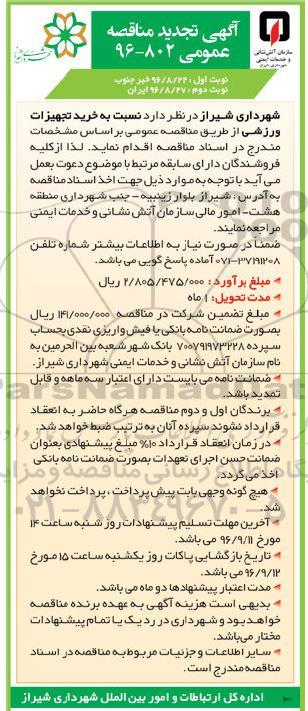 آگهی تجدید مناقصه
عمومی ۸۰۲-۹۶
سازمان آتش نشانی
و خدمات ایمنی
شهرداری شیراز
نوبت اول : ۹۶/۸/۲۴ خبر جنوب
نوبت دوم : ۹۶/۸/۲۷ ایران
شهرداری شیراز در نظر دارد نسبت به خرید تجهیزات
ورزشی از طریق مناقصه عمومی بر اساس مشخصات
مندرج در اسناد مناقصه اقدام نماید. لذا از کلیه
فروشندگان دارای سابقه مرتبط با موضوع دعوت بعمل
می آید با توجه به موارد ذیل جهت اخذ اسناد مناقصه
به آدرس : شیراز بلوار زینبیه - جنب شهرداری منطقه
هشت - امور مالی سازمان آتش نشانی و خدمات ایمنی
مراجعه نمایند.
ضمناً در صورت نیاز به اطلاعات بیشتر شماره تلفن
۳۷۲۹۱۲۰۸-۰۷۱ آماده پاسخ گویی می باشد.
مبلغ برآورد : ۲/۸۰۵/۴۷۵/۰۰۰ ریال
مدت تحویل: ۱ ماه
مبلغ تضمین شرکت در مناقصه ۱۴۱/۰۰۰/۰۰۰ ریال
بصورت ضمانت نامه بانکی یا فیش واریزی نقدی بحساب
سپرده ۷۰۰۷۹۱۹۷۳۲۲۸ بانک شهر شعبه بین الحرمین به
نام سازمان آتش نشانی و خدمات ایمنی شهرداری شیراز.
ضمانت نامه می بایست دارای اعتبار سه ماهه و قابل
تمدید باشد.
برندگان اول و دوم مناقصه هرگاه حاضر به انعقاد
قرارداد نشوند سپرده آنان به ترتیب ضبط خواهد شد.
در زمان انعقاد قرارداد ۱۰٪ مبلغ پیشنهادی بعنوان
ضمانت حسن اجرای تعهدات بصورت ضمانت نامه بانکی
اخذ می گردد.
هیچ گونه وجهی بابت پیش پرداخت ، پرداخت نخواهد
شد.
آخرین مهلت تسلیم پیشنهادات روز شنبه ساعت ۱۴
مورخ ۹۶/۹/۱۱ می باشد.
تاریخ بازگشایی پاکات روز یکشنبه ساعت ۱۵ مورخ
۹۶/۹/۱۲ می باشد.
مدت اعتبار پیشنهادها دو ماه می باشد.
بدیهی است هزینه آگهی به عهده برنده مناقصه
خواهد بود و شهرداری در رد یک یا تمام پیشنهادات
مختار می باشد.
سایر اطلاعات و جزییات مربوط به مناقصه در اسناد
مناقصه مندرج است.
اداره کل ارتباطات و امور بین الملل شهرداری شیراز